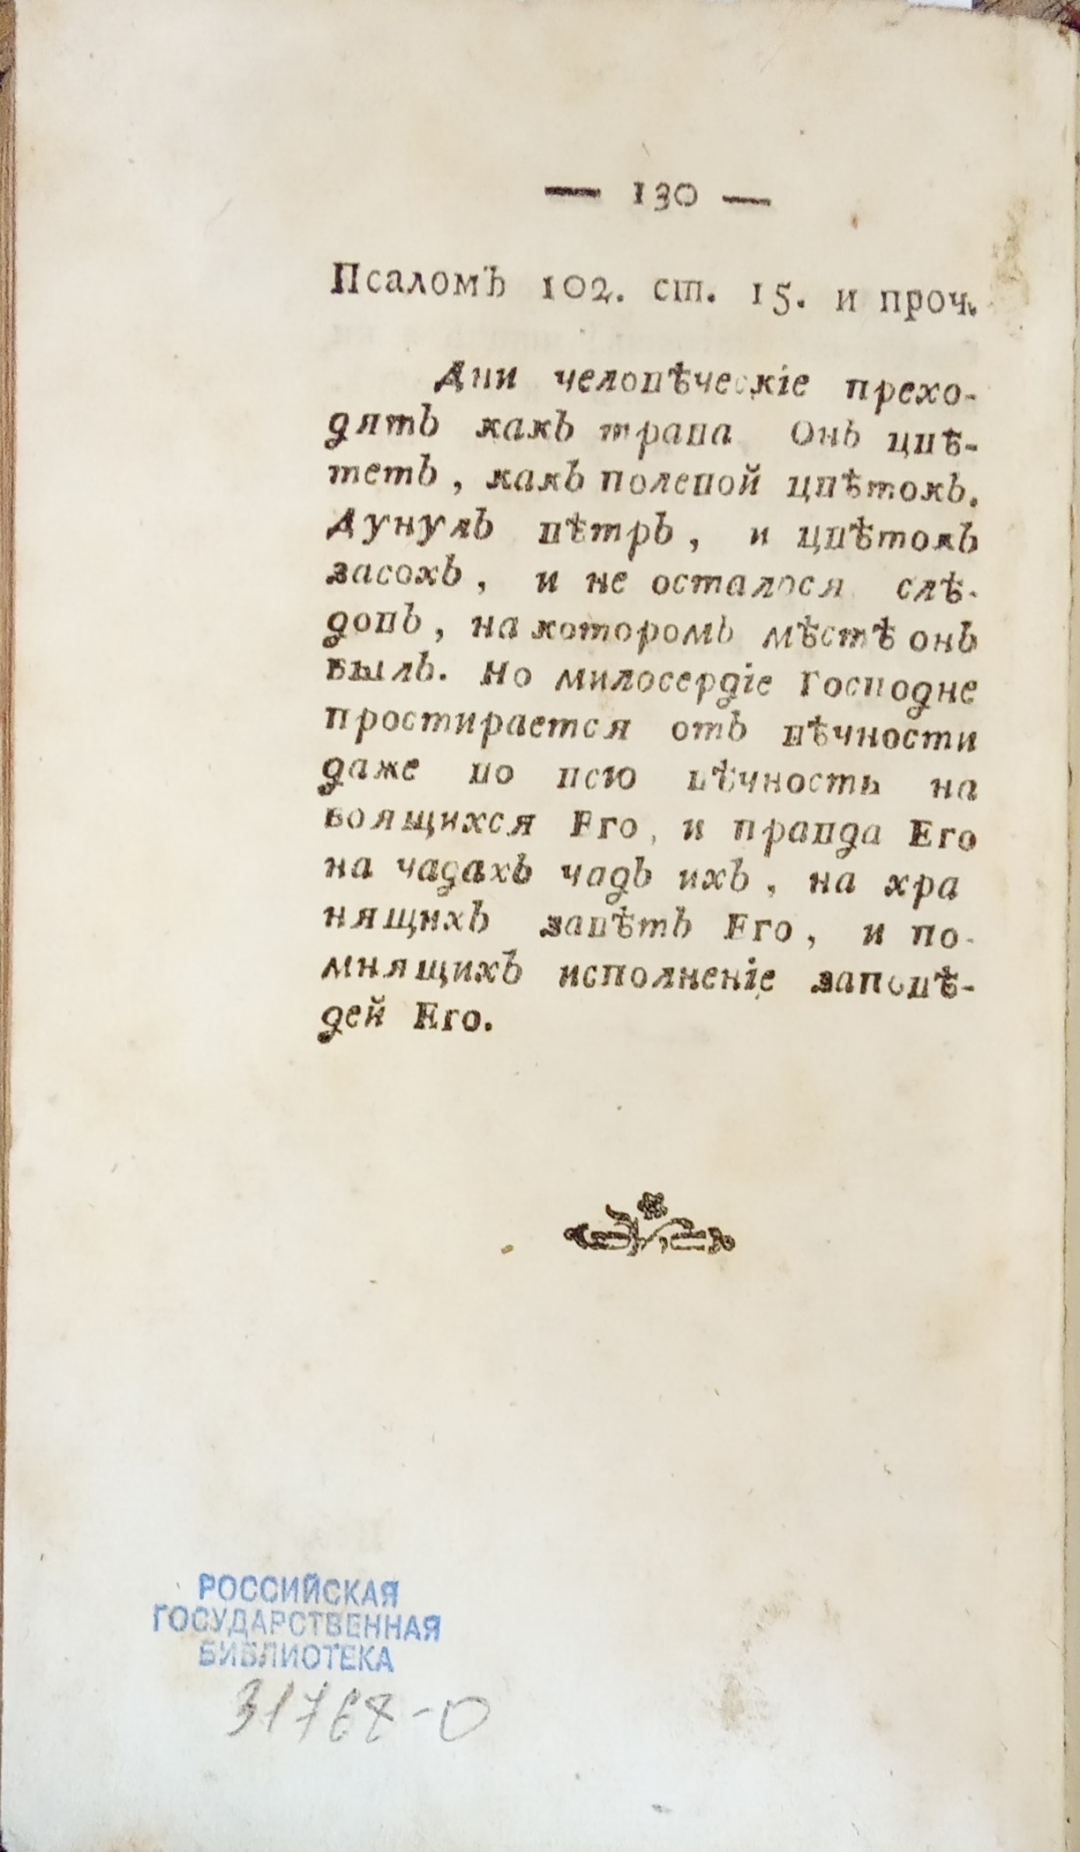 — 130 —
Псаломъ 102. ст. 15. и проч.
Дни человѣческіе прехо-
дятъ какъ трава Онъ цвѣ-
тетъ, какъ полевой цвѣтокъ.
Дунулъ вѣтръ, и цвѣтокъ
засохъ, и не осталося слѣ-
довъ, на которомъ мѣстѣ онъ
былъ. Но милосердіе Господне
простирается отъ вѣчности
даже во всю вѣчность на
боящихся Его, и правда Его
на чадахъ чадъ ихъ, на хра
нящихъ завѣтъ Его, и по-
мнящихъ исполненіе заповѣ-
дей Его.
РОССИЙСКАЯ
ГОСУДАРСТВЕННАЯ
БИБЛИОТЕКА
31768-0